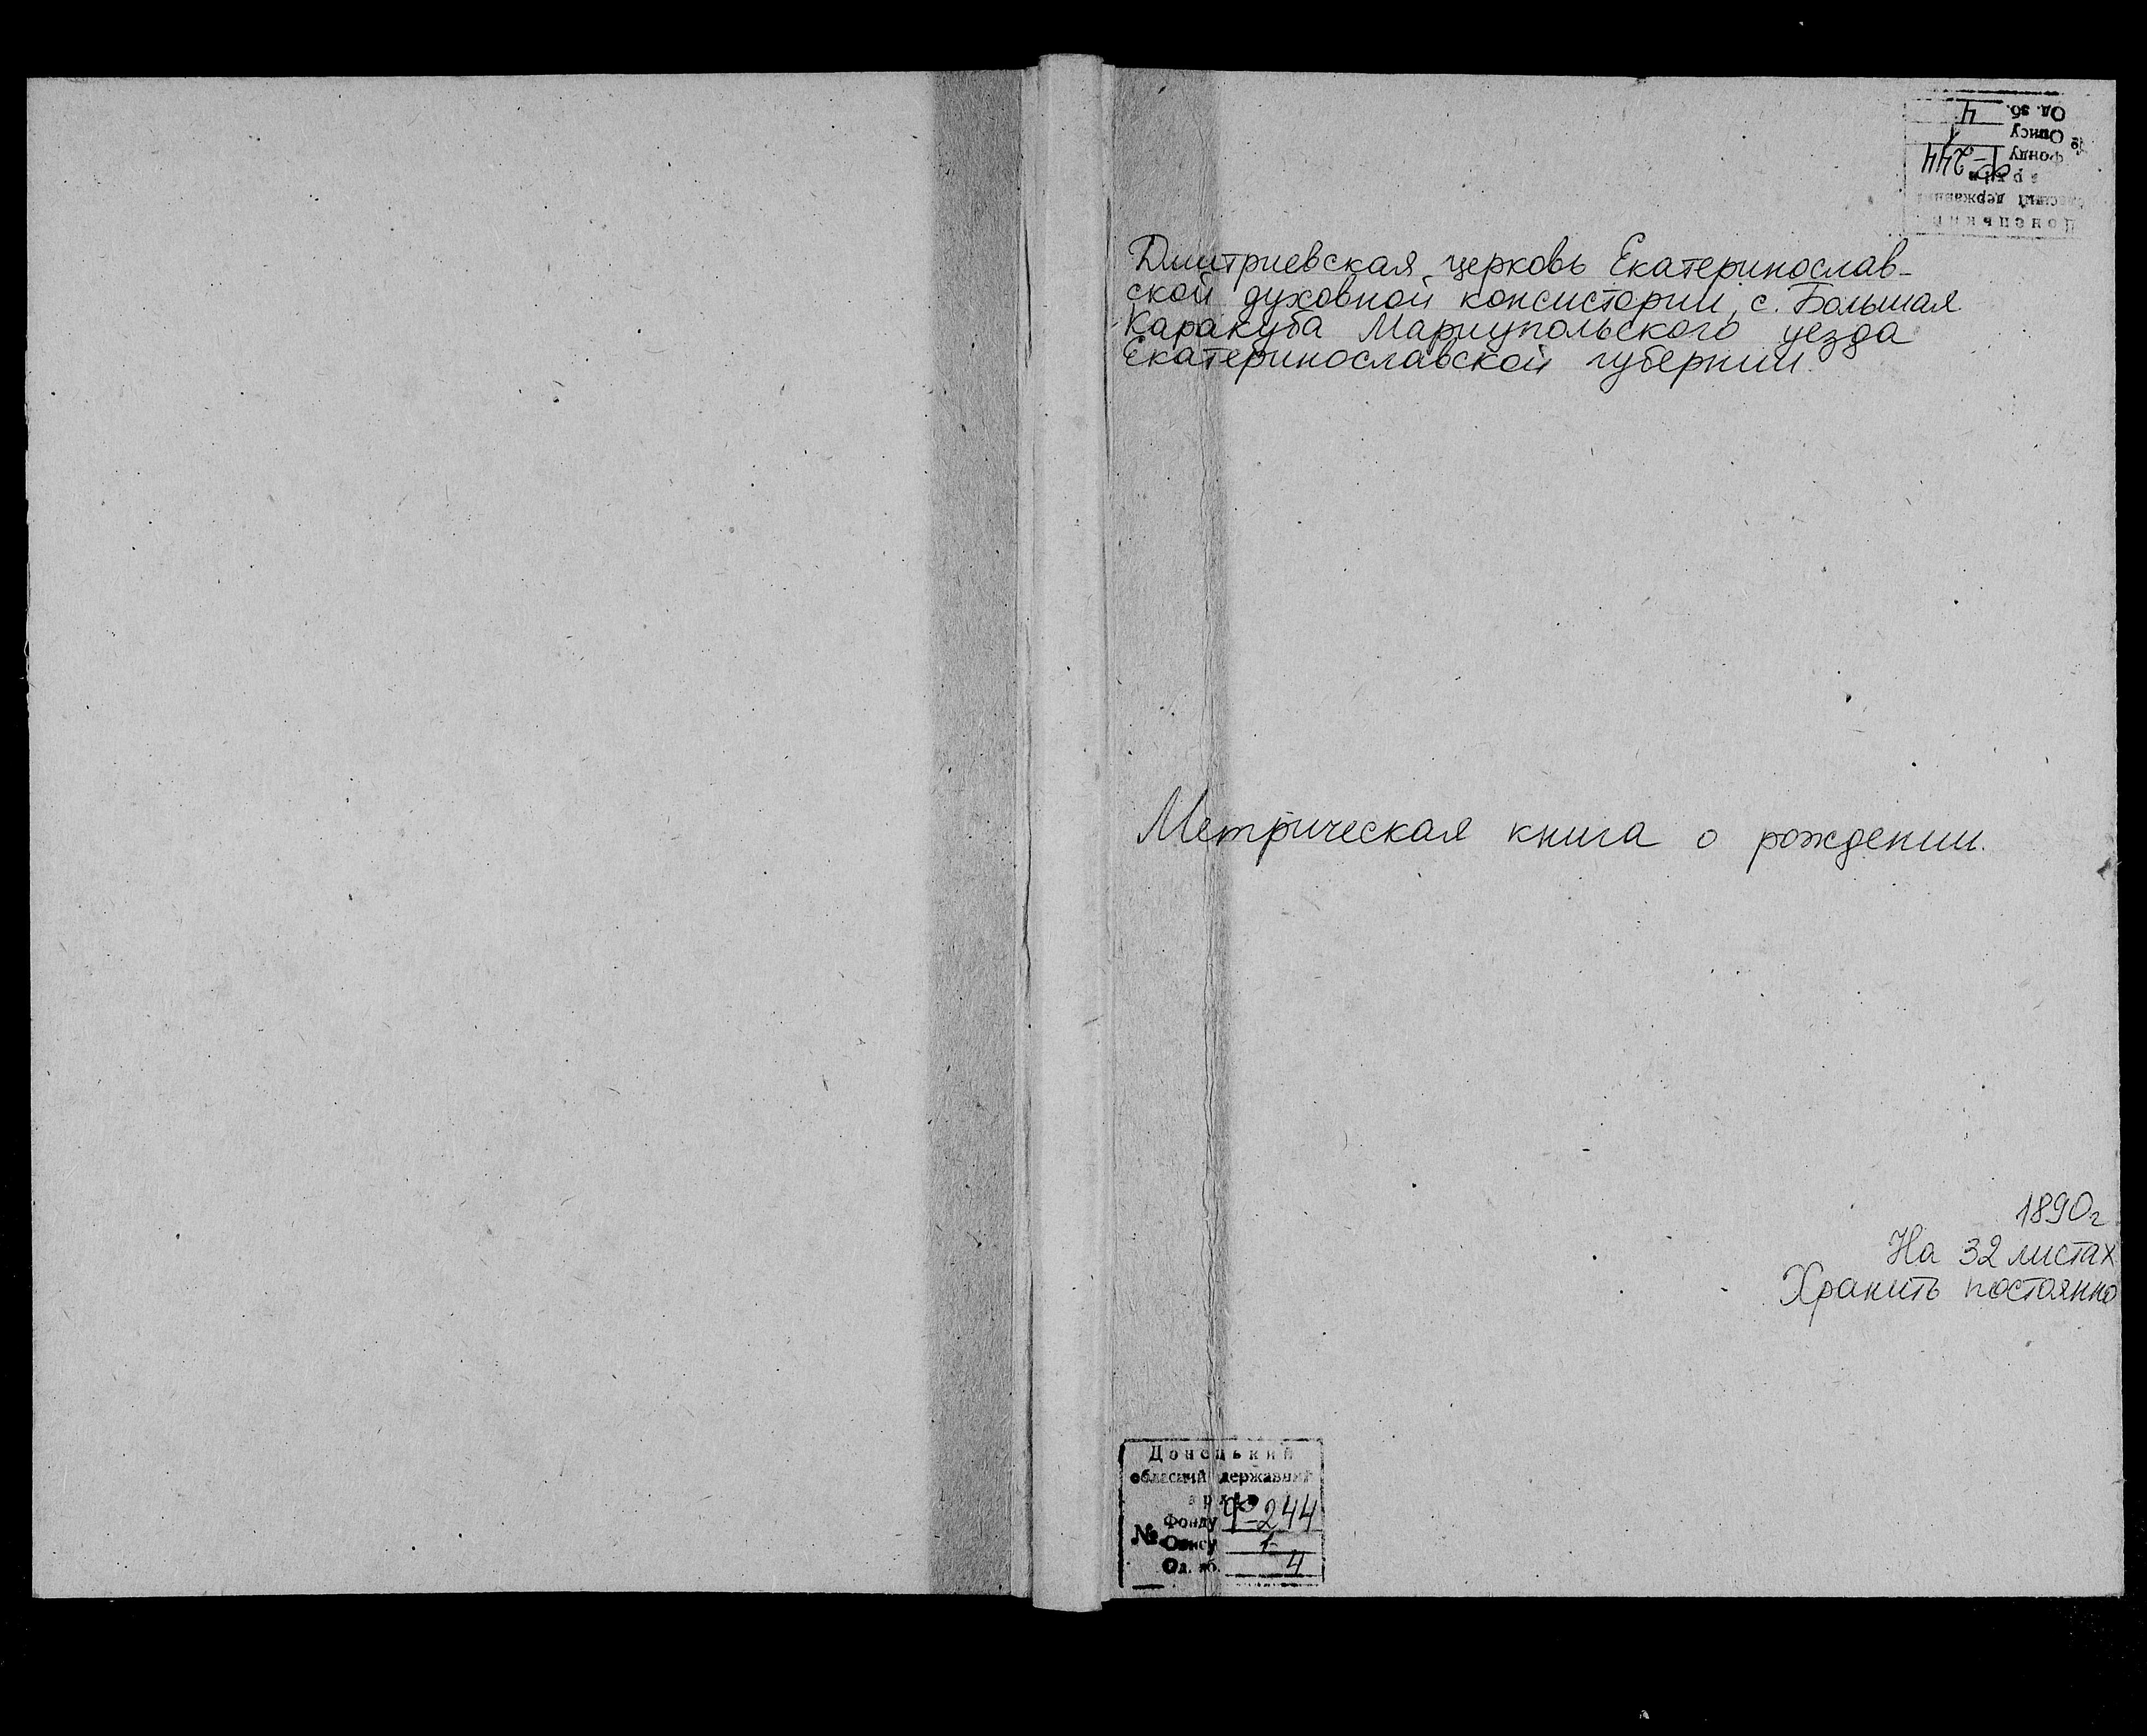 Од. зб. 4
№ Опису 1
Фонду Ф-244
архів
обласний державний
Донецький
Дмитриевская церковь Екатеринослав-
ской духовной консистории, с. Большая
Каракуба Мариупольского уезда
Екатеринославской губернии.
Метрическая книга о рождении.
1890г
На 32 листах
Хранить постоянно
Донецький
обласний державний
архів
Фонду Ф-244
№ Опису 1
Од. зб. 4